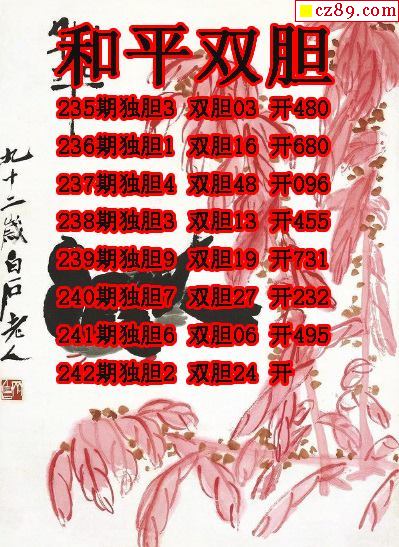 cz89.com
和平双胆
235期独胆3 双胆03 开480
236期独胆1 双胆16 开680
237期独胆4 双胆48 开096
238期独胆3 双胆13 开455
239期独胆9 双胆19 开731
240期独胆7 双胆27 开232
241期独胆6 双胆06 开495
242期独胆2 双胆24 开
九十二岁白石老人